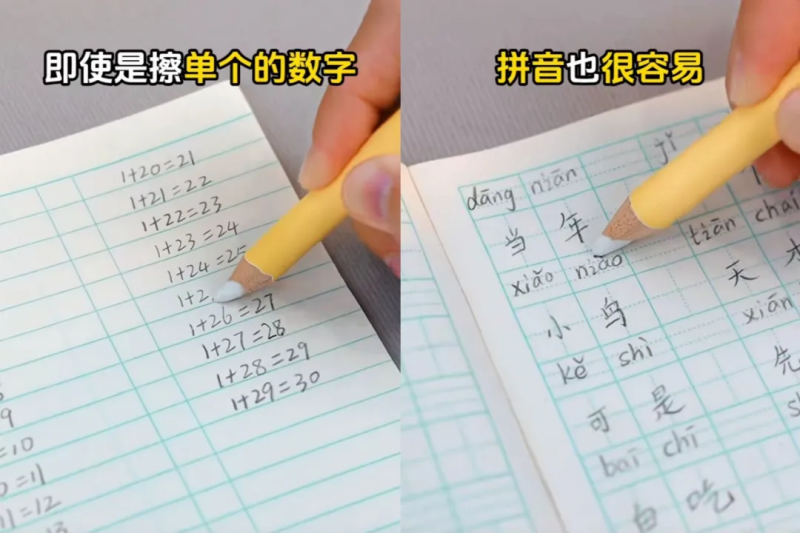 即使是擦单个的数字
1+20=21
1+21=22
1+22=23
1+23=24
1+24=25
1+2
1+26=27
1+27=28
1+28=29
1+29=30
9
=10
=11
11=12
13
拼音也很容易
dāng nián jǐ
当年
xiǎo niǎo tiān chái
小鸟 天才
kě shì xiān
可是 先
bai chī
白吃